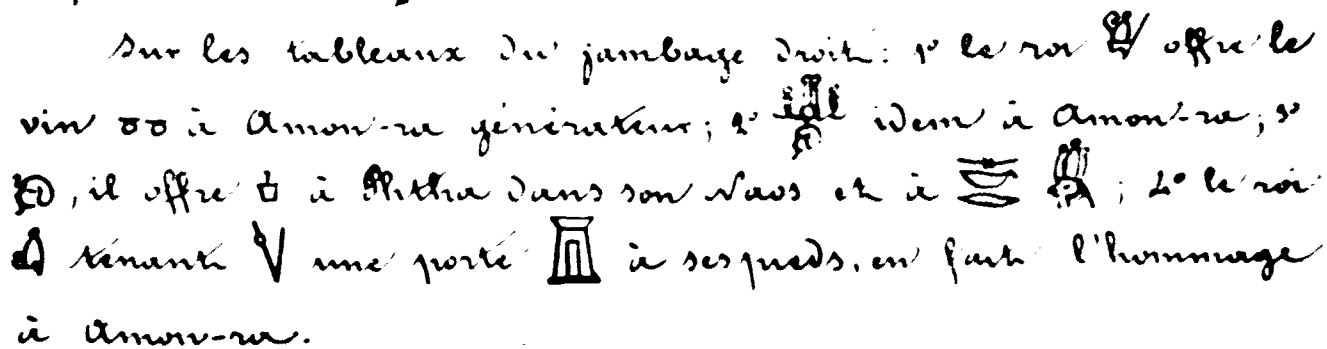 Sur les tableaux du jambage droit: 1° le roi offre le
vin à Amon-ra générateur; 2° idem à Amon-ra; 3°
, il offre à Phtha dans son Naos et à ; 4° le roi
tenant une porte à ses pieds, en fait l'hommage
à Amon-ra.